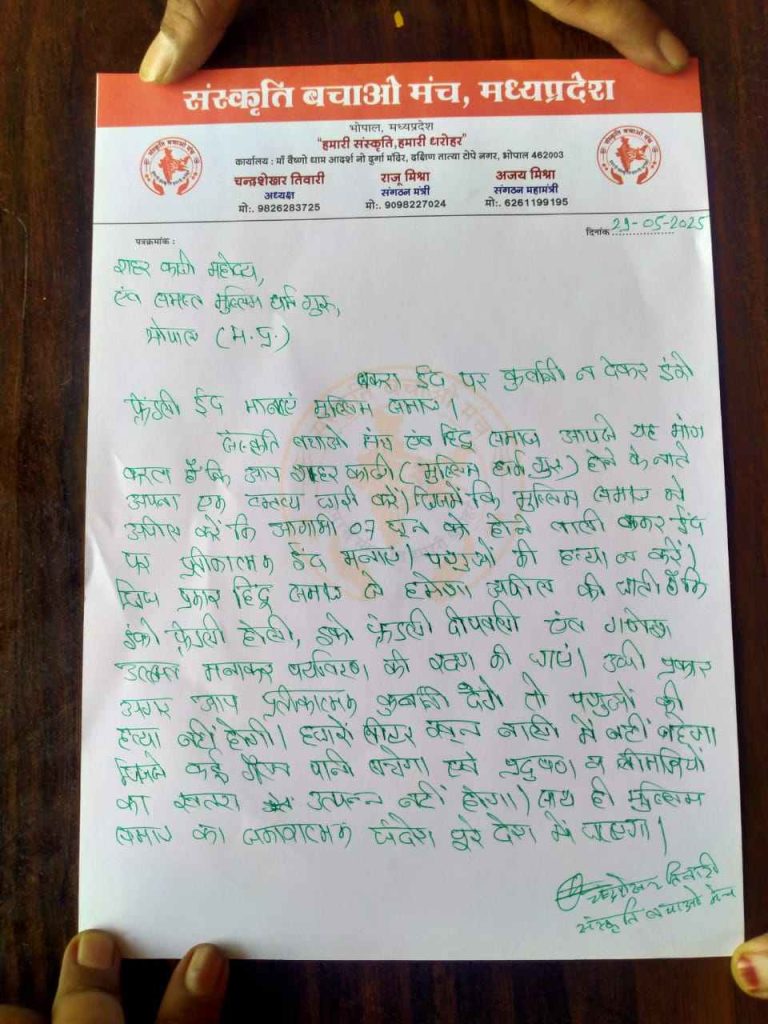 संस्कृति बचाओ मंच, मध्यप्रदेश
भोपाल, मध्यप्रदेश
"हमारी संस्कृति,हमारी धरोहर"
कार्यालय : माँ वैष्णो धाम आदर्श नो दुर्गा मंदिर, दक्षिण तात्या टोपे नगर, भोपाल 462003
चन्द्रशेखर तिवारी राजू मिश्रा अजय मिश्रा
अध्यक्ष संगठन मंत्री संगठन महामंत्री
मो:. 9826283725 मो:. 9098227024 मो:. 6261199195
संस्कृति बचाओ मंच
पत्रक्रमांक :
दिनांक 29-05-2025
शहर काजी महोदय,
एंव समस्त मुस्लिम धर्म गुरू,
भोपाल (म.प्र.)
बकरा ईद पर कुर्बानी न देकर इंको
फ्रेंडली ईद मानाएं मुस्लिम समाज।
संस्कृति बचाओ मंच एंव हिंदु समाज आपसे यह मांग
करता हैं कि आप शहर काजी (मुस्लिम धर्म गुरू) होने के नाते
अपना एक वक्तव्य जारी करें। जिसमें कि मुस्लिम समाज से
अपील करें कि आगामी 07 जून को होने वाली बकर ईद
पर प्रतीकात्मक ईद मनाएं। पशुओं की हत्या न करें।
जिस प्रकार हिंदु समाज से हमेशा अपील की जाती हैं कि
इंको फ्रेंडली होली, इको फ्रेंडली दीपावली एंव गणेश
उत्सव मनाकर पर्यावरण की बचत की जाएं। उसी प्रकार
अगर आप प्रतीकात्मक कुर्बानी देंगे तो पशुओं की
हत्या नहीं होगी। हजारों लीटर खून नालों में नहीं बहेगा
जिससे कई गैलन पानी बचेगा एवं प्रदुषण व बीमारियों
का खतरा उत्पन्न नहीं होगा। साथ ही मुस्लिम
समाज का संदेश पूरे देश में जाएगा।
चन्द्रशेखर तिवारी
संस्कृति बचाओ मंच